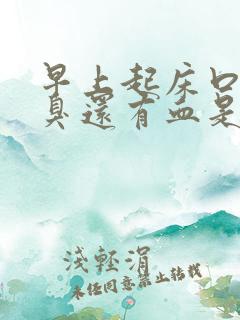 早上起床口
臭還有血是
淺輕涓
未经同意禁止转载